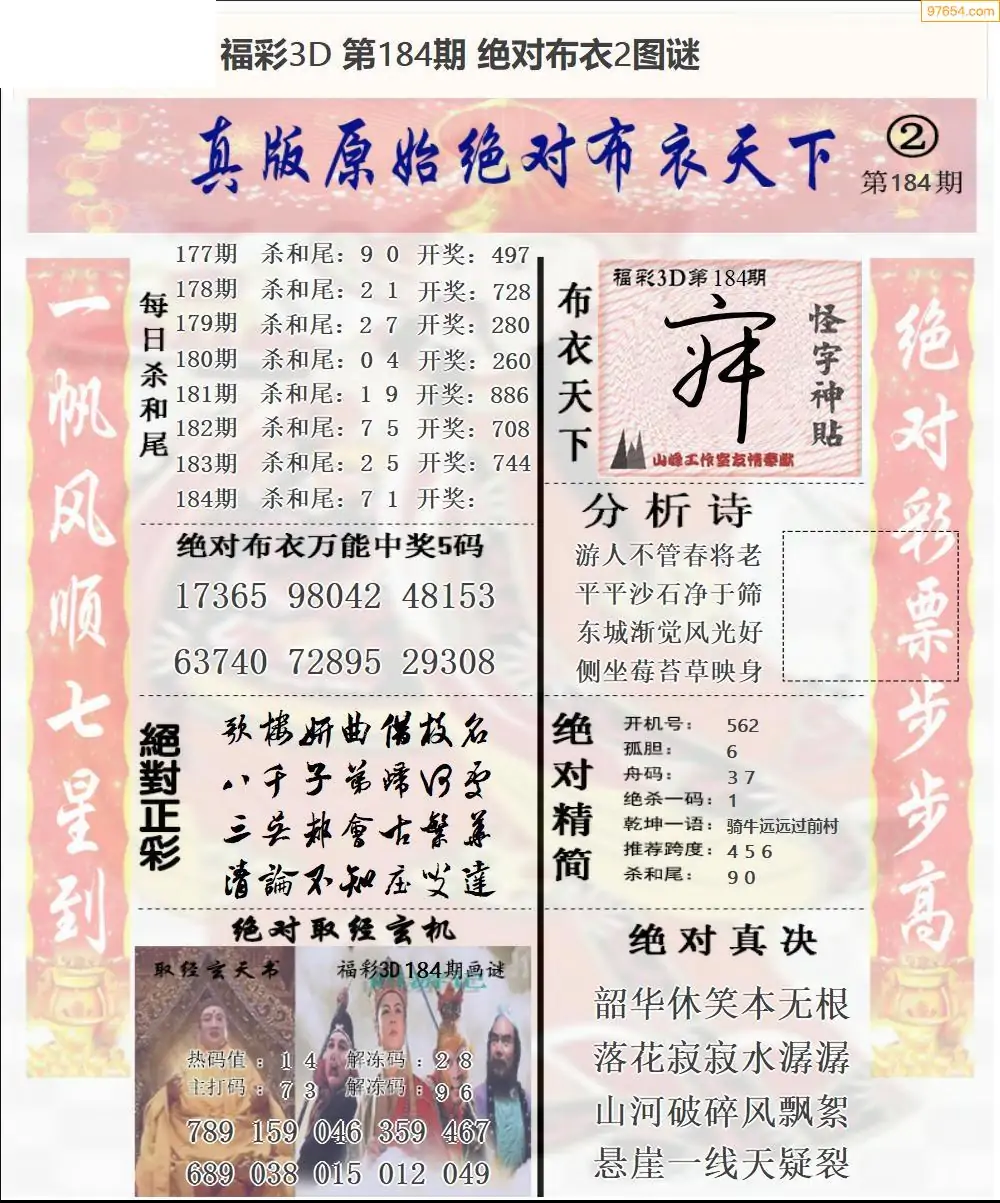 97654.com
福彩3D 第184期 绝对布衣2图谜
真版原始绝对布衣天下
②
第184期
一帆风顺七星到
每日杀和尾
177期 杀和尾：9 0 开奖：497
178期 杀和尾：2 1 开奖：728
179期 杀和尾：2 7 开奖：280
180期 杀和尾：0 4 开奖：260
181期 杀和尾：1 9 开奖：886
182期 杀和尾：7 5 开奖：708
183期 杀和尾：2 5 开奖：744
184期 杀和尾：7 1 开奖：
绝对布衣万能中奖5码
17365 98042 48153
63740 72895 29308
絕對正彩
歌楼妍曲借枝名
八千子弟归何处
三吴都會古繁華
清論不知庄叟達
绝对取经玄机
取经玄天书
福彩3D184期画谜
热码值：1 4 解冻码：2 8
主打码：7 3 解冻码：9 6
789 159 046 359 467
689 038 015 012 049
布衣天下
福彩3D第184期
怪字神貼
山峰工作室友情奉献
分析诗
游人不管春将老
平平沙石净于筛
东城渐觉风光好
侧坐莓苔草映身
绝对精简
开机号：562
孤胆：6
舟码：3 7
绝杀一码：1
乾坤一语：骑牛远远过前村
推荐跨度：4 5 6
杀和尾：9 0
绝对真决
韶华休笑本无根
落花寂寂水潺潺
山河破碎风飘絮
悬崖一线天疑裂
绝对彩票步步高